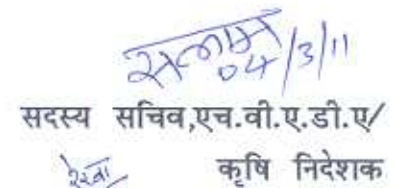 04/3/11
सदस्य सचिव,एच.वी.ए.डी.ए/
कृषि निदेशक